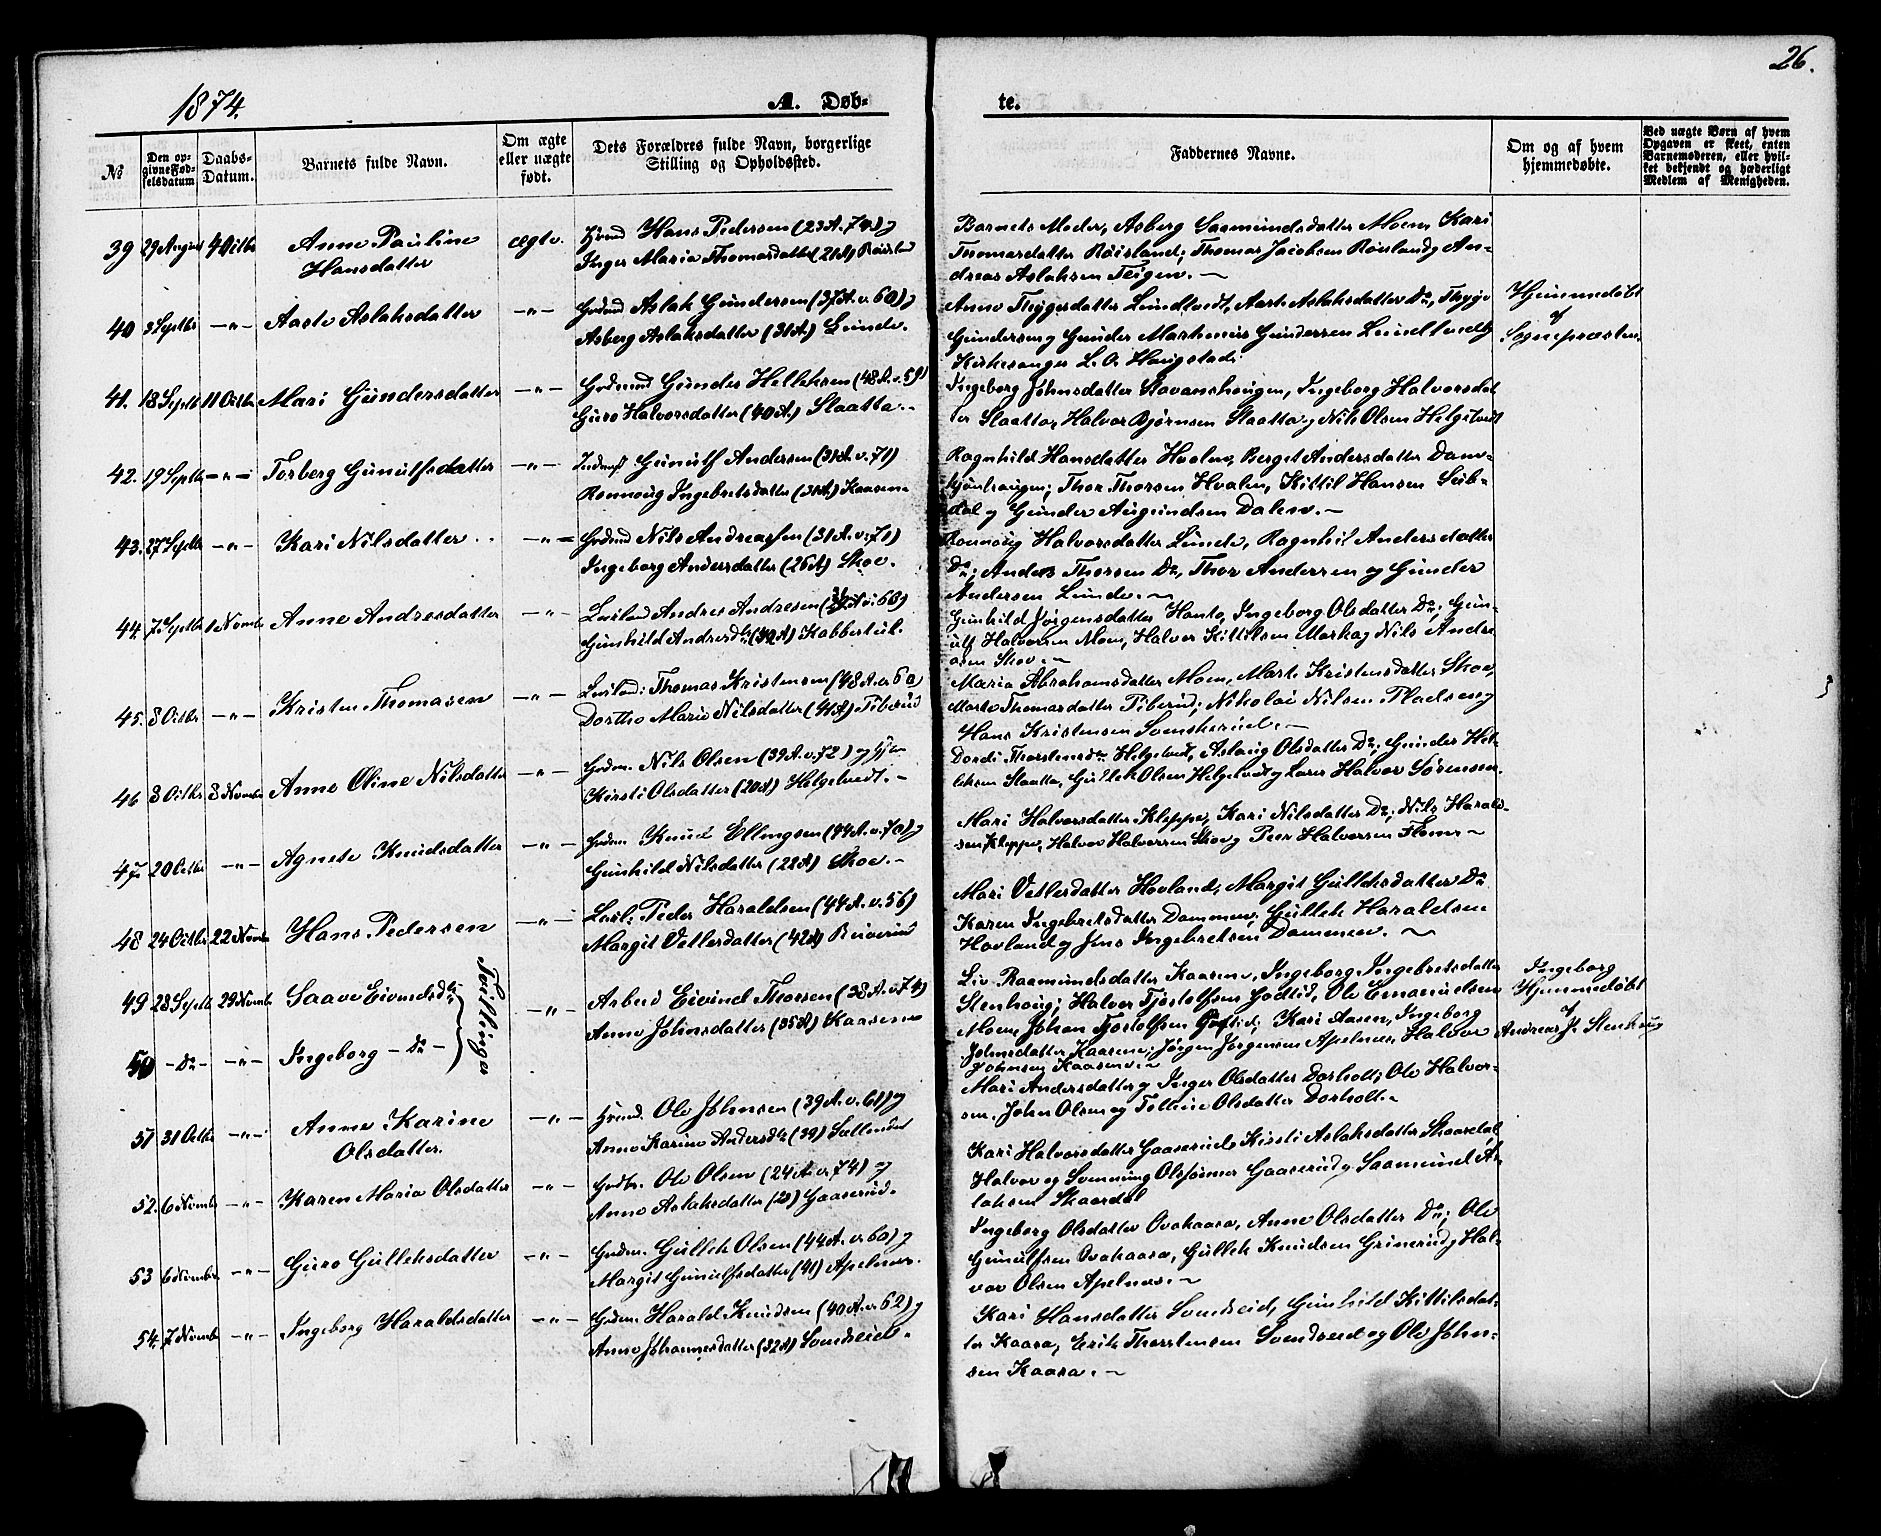 26.
1874.
A. Døb-
te.
No
Den op-
givne Fød-
selsdatum
Daabs-
Datum.
Barnets fulde Navn.
Om ægte
eller uægte
født.
Dets Forældres fulde Navn, borgerlige
Stilling og Opholdssted.
Faddernes Navne.
Om og af hvem
hjemmedøbte.
Ved uægte Børn af hvem
Opgaven er skeet, enten
Barnemoderen, eller hvil-
ket bekjendt og hæderligt
Medlem af Menigheden.
39 29 August 4 Octbr Anne Pauline
Hansdatter
ægte.
Hans Pedersen (23 A. 74) og
Inger Maria Thomasdatter (21 A)
Barnets Moder, Asberg Saamundsdatter Moen, Kari
Thomasdatter Røisland; Thomas Jacobsen Rønland og An-
dreas Aslaksen Teigen. —
40 3 Septbr —„— Aaste Aslaksdatter —„—
Aslak Gundersen (37 A. v. 60) og
Asberg Aslaksdatter (31 A) Lunde.
Anne Thygesdatter Lundtvedt, Aaste Aslaksdatter Do, Thyge
Gundersen og Gunder Marthinius Gundersen Lundtvedt
Kirkesanger L. O. Haugstad;
Hjemmedøbt
af
Sognepræsten
41. 18 Septbr 11 Octbr Mari Gundersdatter —„—
Gunder Helleksen (48 A. v. 59)
Guro Halvorsdatter (40 A) Slaatta.
Ingeborg Johnsdatter Stovanshougen, Ingeborg Halvorsdat
ter Slaatta, Halvor Bjørnsen Slaatta og Nils Olsen Helgetvedt
42. 19 Septbr —„— Torberg Gunulfsdatter —„—
Inderst Gunulf Andersen (31 A. v. 71)
Ronnoug Ingebretsdatter (31 A) Kaasene
Ragnhild Hansdatter Hvalen, Berget Andersdatter Dam-
Thor Thorsen Hvalen, Kittil Hansen
dal og Gunder Augundsen Dalen. —
43. 27 Septbr —„— Kari Nilsdatter —„—
Nils Andreassen (31 A. v. 71)
Ingeborg Andersdatter (26 A) Skoe.
Ronnoug Halvorsdatter Lunde, Ragnhil Andersdatter
Do; Anders Thorsen Do, Thor Andersen og Gunder
Andersen Lunde. —
44 7 Septbr 1 Novmbr Anne Andresdatter —„—
Andres Andresen
Gunhild Andresdtr Kabbestul.
Gunhild Jørgensdatter Hanto, Ingeborg Olsdatter Do; Gun-
ulf Halvorsen Moen, Halvor Kittilsen Marka og Nils Andre
asen Skoe. —
45. 8 Octbr —„— Kristen Thomasen —„—
Thomas Kristensen (48 A. v. 60)
Dorthe Marie Nilsdatter (41 A) Piberud
Maria Abrahamsdatter Moen, Marte Kristensdatter Skoe,
Marte Thomasdatter Piberud; Nikolai Nilsen Pladsen og
Hans Kristensen Svenskerud. —
46 8 Octbr 8 Novmbr Anne Oline Nilsdatter —„—
Nils Olsen (39 A. v. 72) og
Kirsti Olsdatter (20 A) Helgetvedt. —
Dordi Thorstensdtr Helgetvedt, Aslaug Olsdatter Do; Gunder Hel-
leksen Slaatta, Gullek Olsen Helgetvedt og Lærer Halvor Sørensen.
47 20 Octbr —„— Agnete Knudsdatter —„—
Knud Ellingsen (44 A. v. 70) og
Gunhild Nilsdatter (28 A) Skoe. —
Mari Halvorsdatter Kleppe, Kari Nilsdatter Do; Nils Harald-
sen Kleppe, Halvor Halvorsen Skoe og Peer Halvorsen —
48 24 Octbr 22 Novmbr Hans Pedersen —„—
Peder Haraldsen (44 A. v. 56)
Margit Vetlesdatter (42 A)
Mari Vetlesdatter Hovland; Margit Gulleksdatter Do
Karen Ingebretsdatter Dammen; Gullek Haraldsen
Hovland og Jens Ingebretsen Dammen. —
49 28 Septbr 29 Novmbr Saave Eivindsdtr
Tvillinger
—„—
Arbeid Eivind Thorsen (38 A. v. 74)
Anne Johnsdatter (35 A) Kaasene
Liv Raamundsdatter Kaasene, Ingeborg Ingebretsdatter
Stenhoug; Halvor Tjostolfsen Godtid, Ole Emanuelsen
Moen, Johan Tjostolfsen Godtid; Kari Aasen, Ingeborg
Johnsdatter Kaasene; Jørgen Jørgensen Apelnes, Halvor
Johnsen Kaasene. —
Ingeborg
Hjemmedøbt
af
Andreas J. Stenhoug
50 —Do— —„— Ingeborg —Do—
51 31 Octbr —„— Anne Karine
Olsdatter.
—„—
Ole Johnsen (39 A. v. 61) og
Anne Karine Andersdtr (39)
Mari Andersdatter og Inger Olsdatter Dorholt; Ole Halvor-
sen, John Olsen og Olsdatter Dorholt. —
52. 6 Novmbr —„— Karen Maria Olsdatter —„—
Ole Olsen (24 A. v. 74) og
Anne Aslaksdatter Gaaserud.
Kari Halvorsdatter Gaaserud, Kirsti Aslaksdatter Skaardal,
Halvor og Svennung Olssønner Gaaserud og Saamund As-
laksen Skaardal
53 6 Novmbr —„— Guro Gulleksdatter —„—
Gullek Olsen (44 A. v. 60) og
Margit Gunulfsdatter (41) Apelnes.
Ingeborg Olsdatter Ovakaasa, Anne Olsdatter Do; Ole
Gunulfsen Ovakaasa, Gullek Knudsen Grinerud og Hal-
vor Olsen Apelnes. —
54. 7 Novmbr —„— Ingeborg Haraldsdatter —„—
Harald Knudsen (40 A. v. 62) og
Anne Johannesdatter (32 A) Svendseid.
Kari Hansdatter Svendseid, Gunhild Kittilsdat-
ter Kaasa, Erik Thorstensen Svendseid og Ole John-
sen Kaasa. —